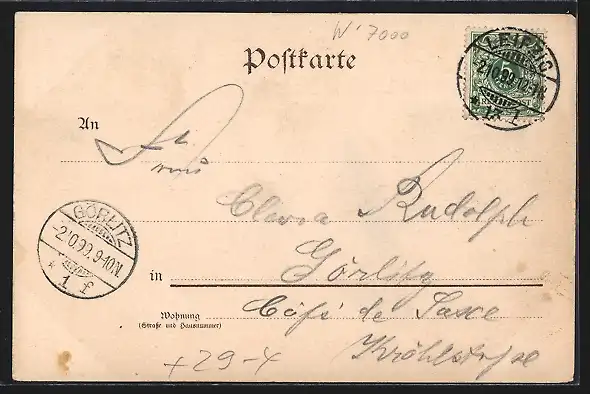 W' 7000
Postkarte
LEIPZIG
2.10.99.
REICHSPOST
An
Clara Rudolph
GÖRLITZ
-2.10.99. 9-10N.
* 1 f
in Görlitz
Wohnung
(Straße und Hausnummer)
Café de Saxe
+29-4